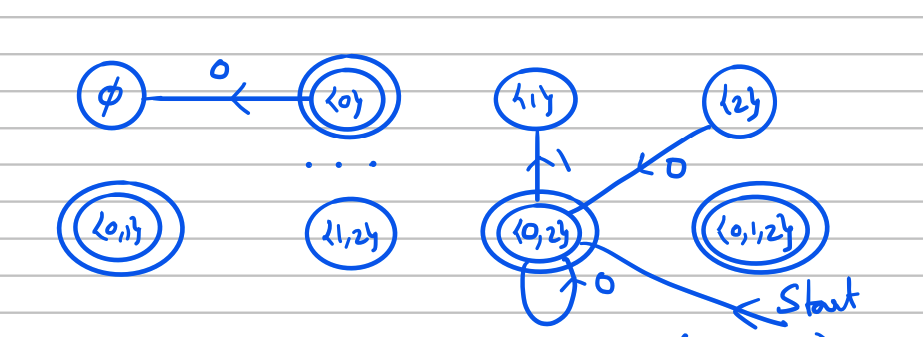 0
φ {0} {1} {2}
. . . 1 0
{0,1} {1,2} {0,2} {0,1,2}
0 Start